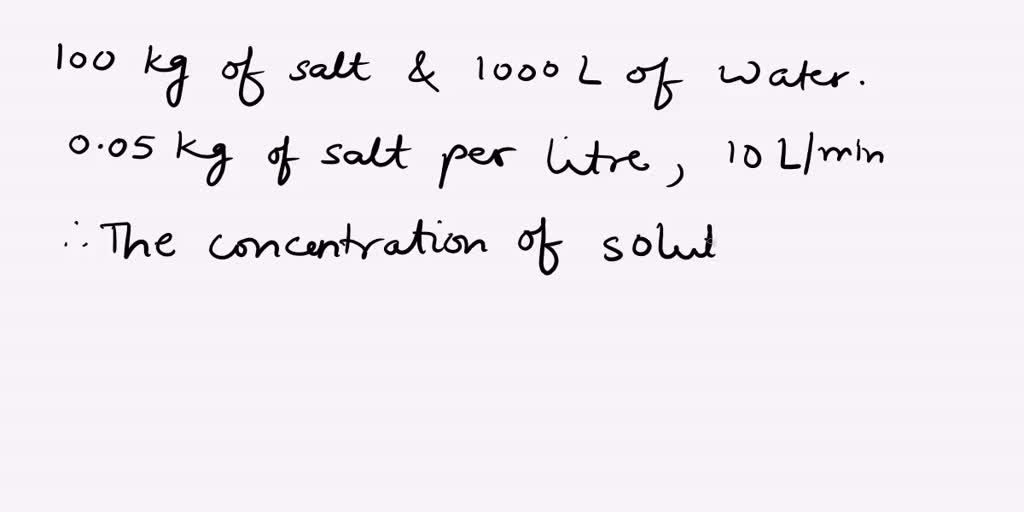 100 kg of salt & 1000 L of water.
0.05 kg of salt per litre, 10 L/min
∴ The concentration of solut